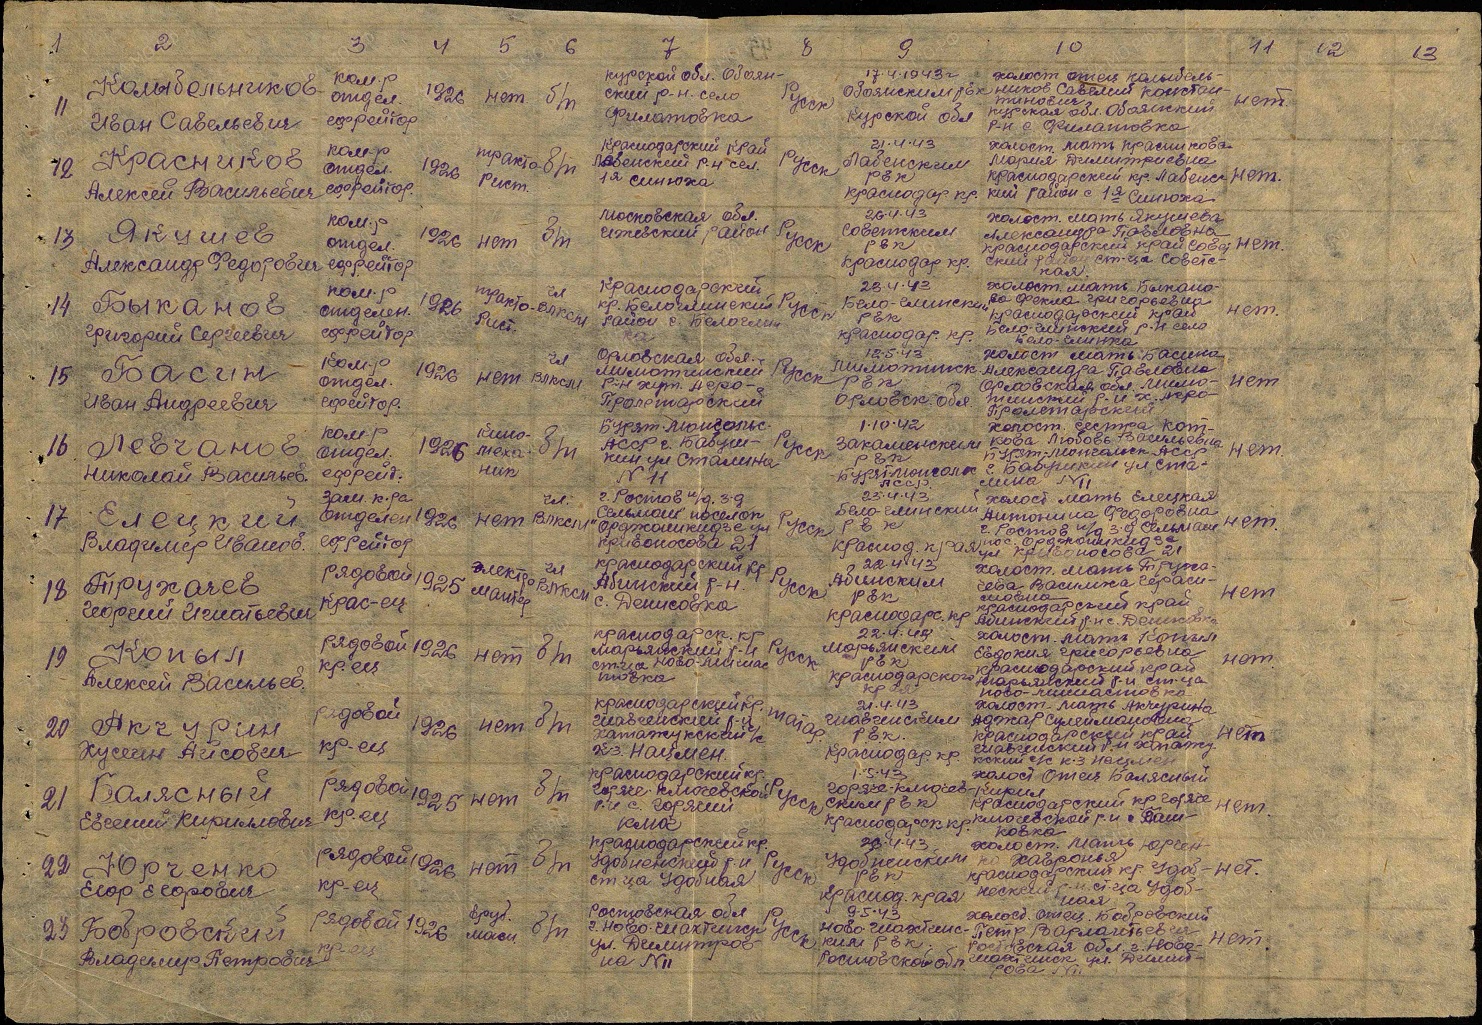 1 2 3 4 5 6 7 8 9 10 11 12 13
11 Колыбельников Иван Савельевич
ком-р отдел. ефрейтор
1926 нет б/п
Курской обл. Обоян-
ский р-н село
Филатовка
Русск
17.4.1943г
Обоянским рвк
Курской обл
холост отец Колыбель-
ников Савелий Констан-
тинович
Курская обл. Обоянский
р-н с Филатовка
нет.
12 Красников
Алексей Васильевич
ком-р
отдел.
ефрейтор.
1926
тракто-
рист.
б/п
Краснодарский край
Лабенский р-н сел.
1я Синюха
Русск
21.4.43
Лабенским
РВК
Краснодар кр.
холост. мать Красникова
Мария Димитриевна
Краснодарский кр. Лабенс-
кий район с 1я Синюха
нет.
13 Якушев
Александр Федорович
ком-р
отдел.
ефрейтор
1926 нет б/п
Московская обл.
район
Русск
26.4.43
Советским
РВК
Краснодар кр.
холост. мать Якушева
Александра Павловна
Краснодарский край Сове
ский район ст-ца Советс-
кая.
нет.
14 Быканов
Григорий Сергеевич
ком-р
отделен.
ефрейтор
1926
тракто-
рист.
чл
ВЛКСМ
Краснодарский
кр. Белоглинский
район с. Белоглин
ка
Русск
23.4.43
Бело-Глинским
РВК
Краснодар. кр.
холост. мать Быкано-
ва Фекла Григорьевна
Краснодарский край
Бело-Глинский р-н село
Бело-Глинка
нет.
15 Басин
Иван Андреевич
ком-р
отдел.
ефрейтор.
1926 нет
чл
ВЛКСМ
Орловская обл.
р-н хут. Аеро-
Пролетарский
Русск
12.5.43
РВК
Орловск. обл
холост мать Басина
Александра Павловна
Орловская обл.
р-н х. Аеро-
Пролетарский
нет
16 Левчанов
Николай Васильев.
ком-р
отдел.
ефрейт.
1926
кино-
меха-
ник
б/п
Бурят-Монгольс.
АССР г. Бабуш-
кин ул Сталина
N 11
Русск
1.10.42
Закаменским
РВК
Бурят-Монгольс
АССР
холост. сестра Кот-
кова Любовь Васильевна
Бурят-Монгольск АССР
г. Бабушкин ул Ста-
лина N11
нет.
17 Елецкий
Владимир Иванов.
зам. к-ра
отделен
ефрейтор
1926 нет
чл.
ВЛКСМ
г. Ростов н/д. з-д
Сельмаш поселок
Орджоникидзе ул
Кривоносова 21
Русск
23.4.43
Бело-Глинский
РВК
Краснод. края
холост мать Елецкая
Антонина Федоровна
г. Ростов н/д з-д Сельмаш
пос. Орджоникидзе
ул Кривоносова 21
нет.
18 Трухачев
Георгий Игнатьевич
рядовой
крас-ец
1925
электро
монтер
чл
ВЛКСМ
Краснодарский кр
Абинский р-н.
с. Денисовка
Русск
22.4.43
Абинским
РВК
Краснодарс. кр
холост. мать Труха-
чева Василиса Гераси-
мовна
Краснодарский край
Абинский р-н с. Денисовка
нет
19 Копыл
Алексей Васильев.
рядовой
кр-ец
1926 нет б/п
Краснодарск. кр
Марьянский р-н
ст-ца Ново-Мышас
товка
Русск
22.4.43
Марьянским
РВК
Краснодарского
края
холост. мать Копыл
Евдокия Григорьевна
Краснодарский край
Марьянский р-н ст-ца
Ново-Мышастовка
нет.
20 Акчурин
Хусеин Айсович
рядовой
кр-ец
1926 нет б/п
Краснодарский кр.
р-н
к-з. Нацмен.
татар.
21.4.43
РВК.
Краснодар. кр.
холост. мать Акчурина
Аджар Сулеймановна
Краснодарский край
р-н
к-з Нацмен
нет
21 Балясный
Евгений Кириллович
рядовой
кр-ец
1925 нет б/п
Краснодарский кр.
Горяче-Ключевской
р-н с. Горячий
ключ
Русск
1.5.43
Горяче-Ключев-
ским РВК
Краснодарск. кр.
холост отец Балясный
Кирил
Краснодарский кр Горяче
Ключевской р-н с Фаш-
ковка
нет.
22 Юрченко
Егор Егорович
рядовой
кр-ец
1926 нет б/п
Краснодарский кр.
Удобненский р-н
ст-ца Удобная
Русск
23.4.43
Удобненским
РВК
Краснод. края
холост. мать Юрчен-
ко Хавронья
Краснодарский кр Удоб-
ненский р-н ст-ца Удоб-
ная
нет.
23 Бобровский
Владимир Петрович
рядовой
кр-ец
1926
б/п
Ростовская обл
г. Ново-Шахтинск
ул. Димитров-
на N11
Русск
9.5.43
Ново-Шахтинс-
ким РВК.
Ростовской обл
холост. отец. Бобровский
Петр Варлатьевич
Ростовская обл. г. Ново-
Шахтинск ул. Димит-
рова N11
нет.